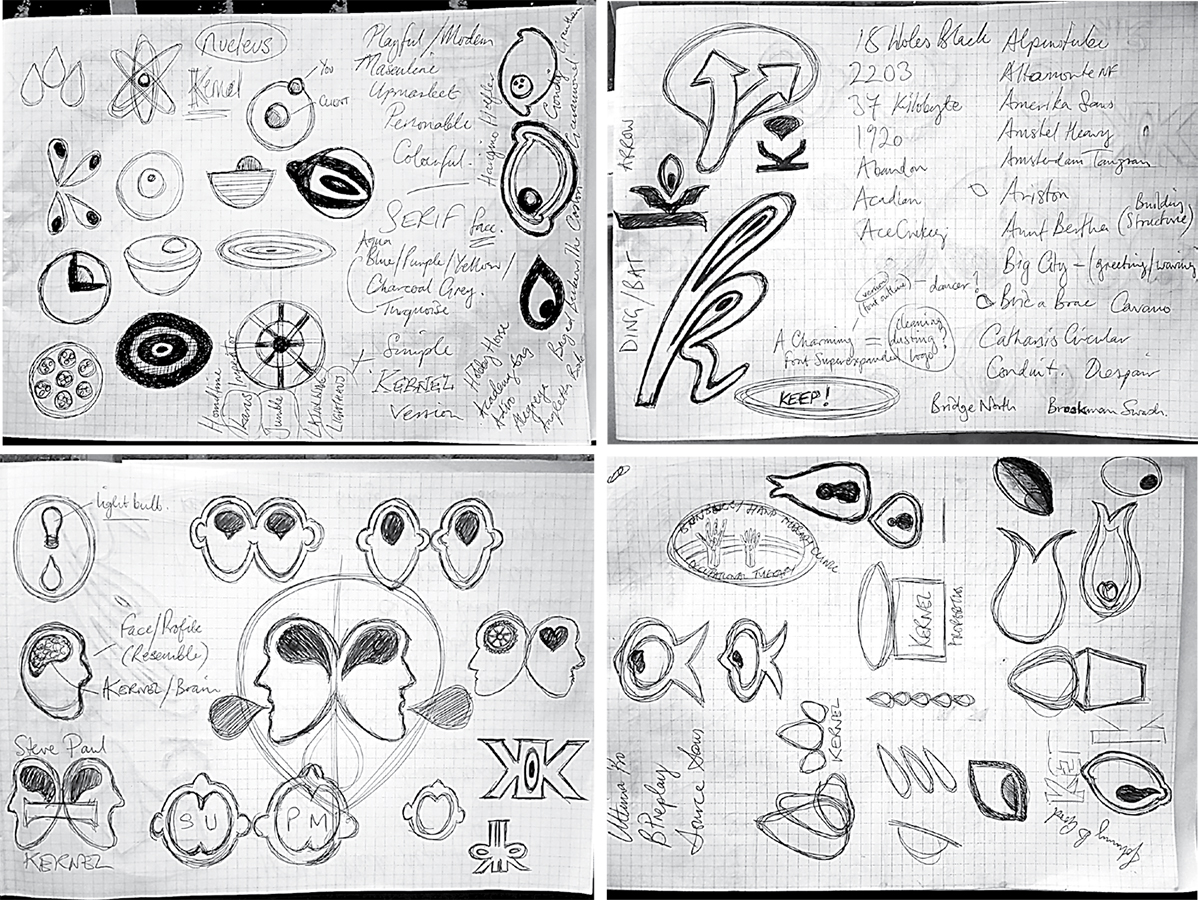 Nucleus
Kernel
You
Client
Playful/Modern
Masculine
Upmarket
Personable
Colourful.
SERIF face.
Aqua
Blue/Purple/Yellow/
Charcoal Grey.
Turquoise
Simple
KERNEL
Version
Hobby Horse
Academy Tag
Astro
Allegreya
Jumble
18 Holes Black
2203
37 Kilobyte
1920
Abandon
Acadian
Alpinstube
Altamonte NF
Amerika Sans
Amstel Heavy
Amsterdam Tangram
Ariston
Aunt Bertha
Building
(Structure)
Big City - (greeting/waving
Bric a Brac Cavano
Catharsis Circular
Conduit. Despair
Bridge North
Brookman Swash.
ARROW
DING/BAT
version
(font outline)
- dancer?
A Charming =
font Superexpanded
cleaning
dusting?
logo
KEEP!
K
light bulb.
Face/Profile
(Resemble)
KERNEL/Brain
Steve Paul
KERNEL
S U
P M
K
HAND THERAPY CLINIC
OCCUPATIONAL THERAPY
KERNEL
PROPERTIES
KERNEL
Ultima Pro
B Preplay
Source Sans
K